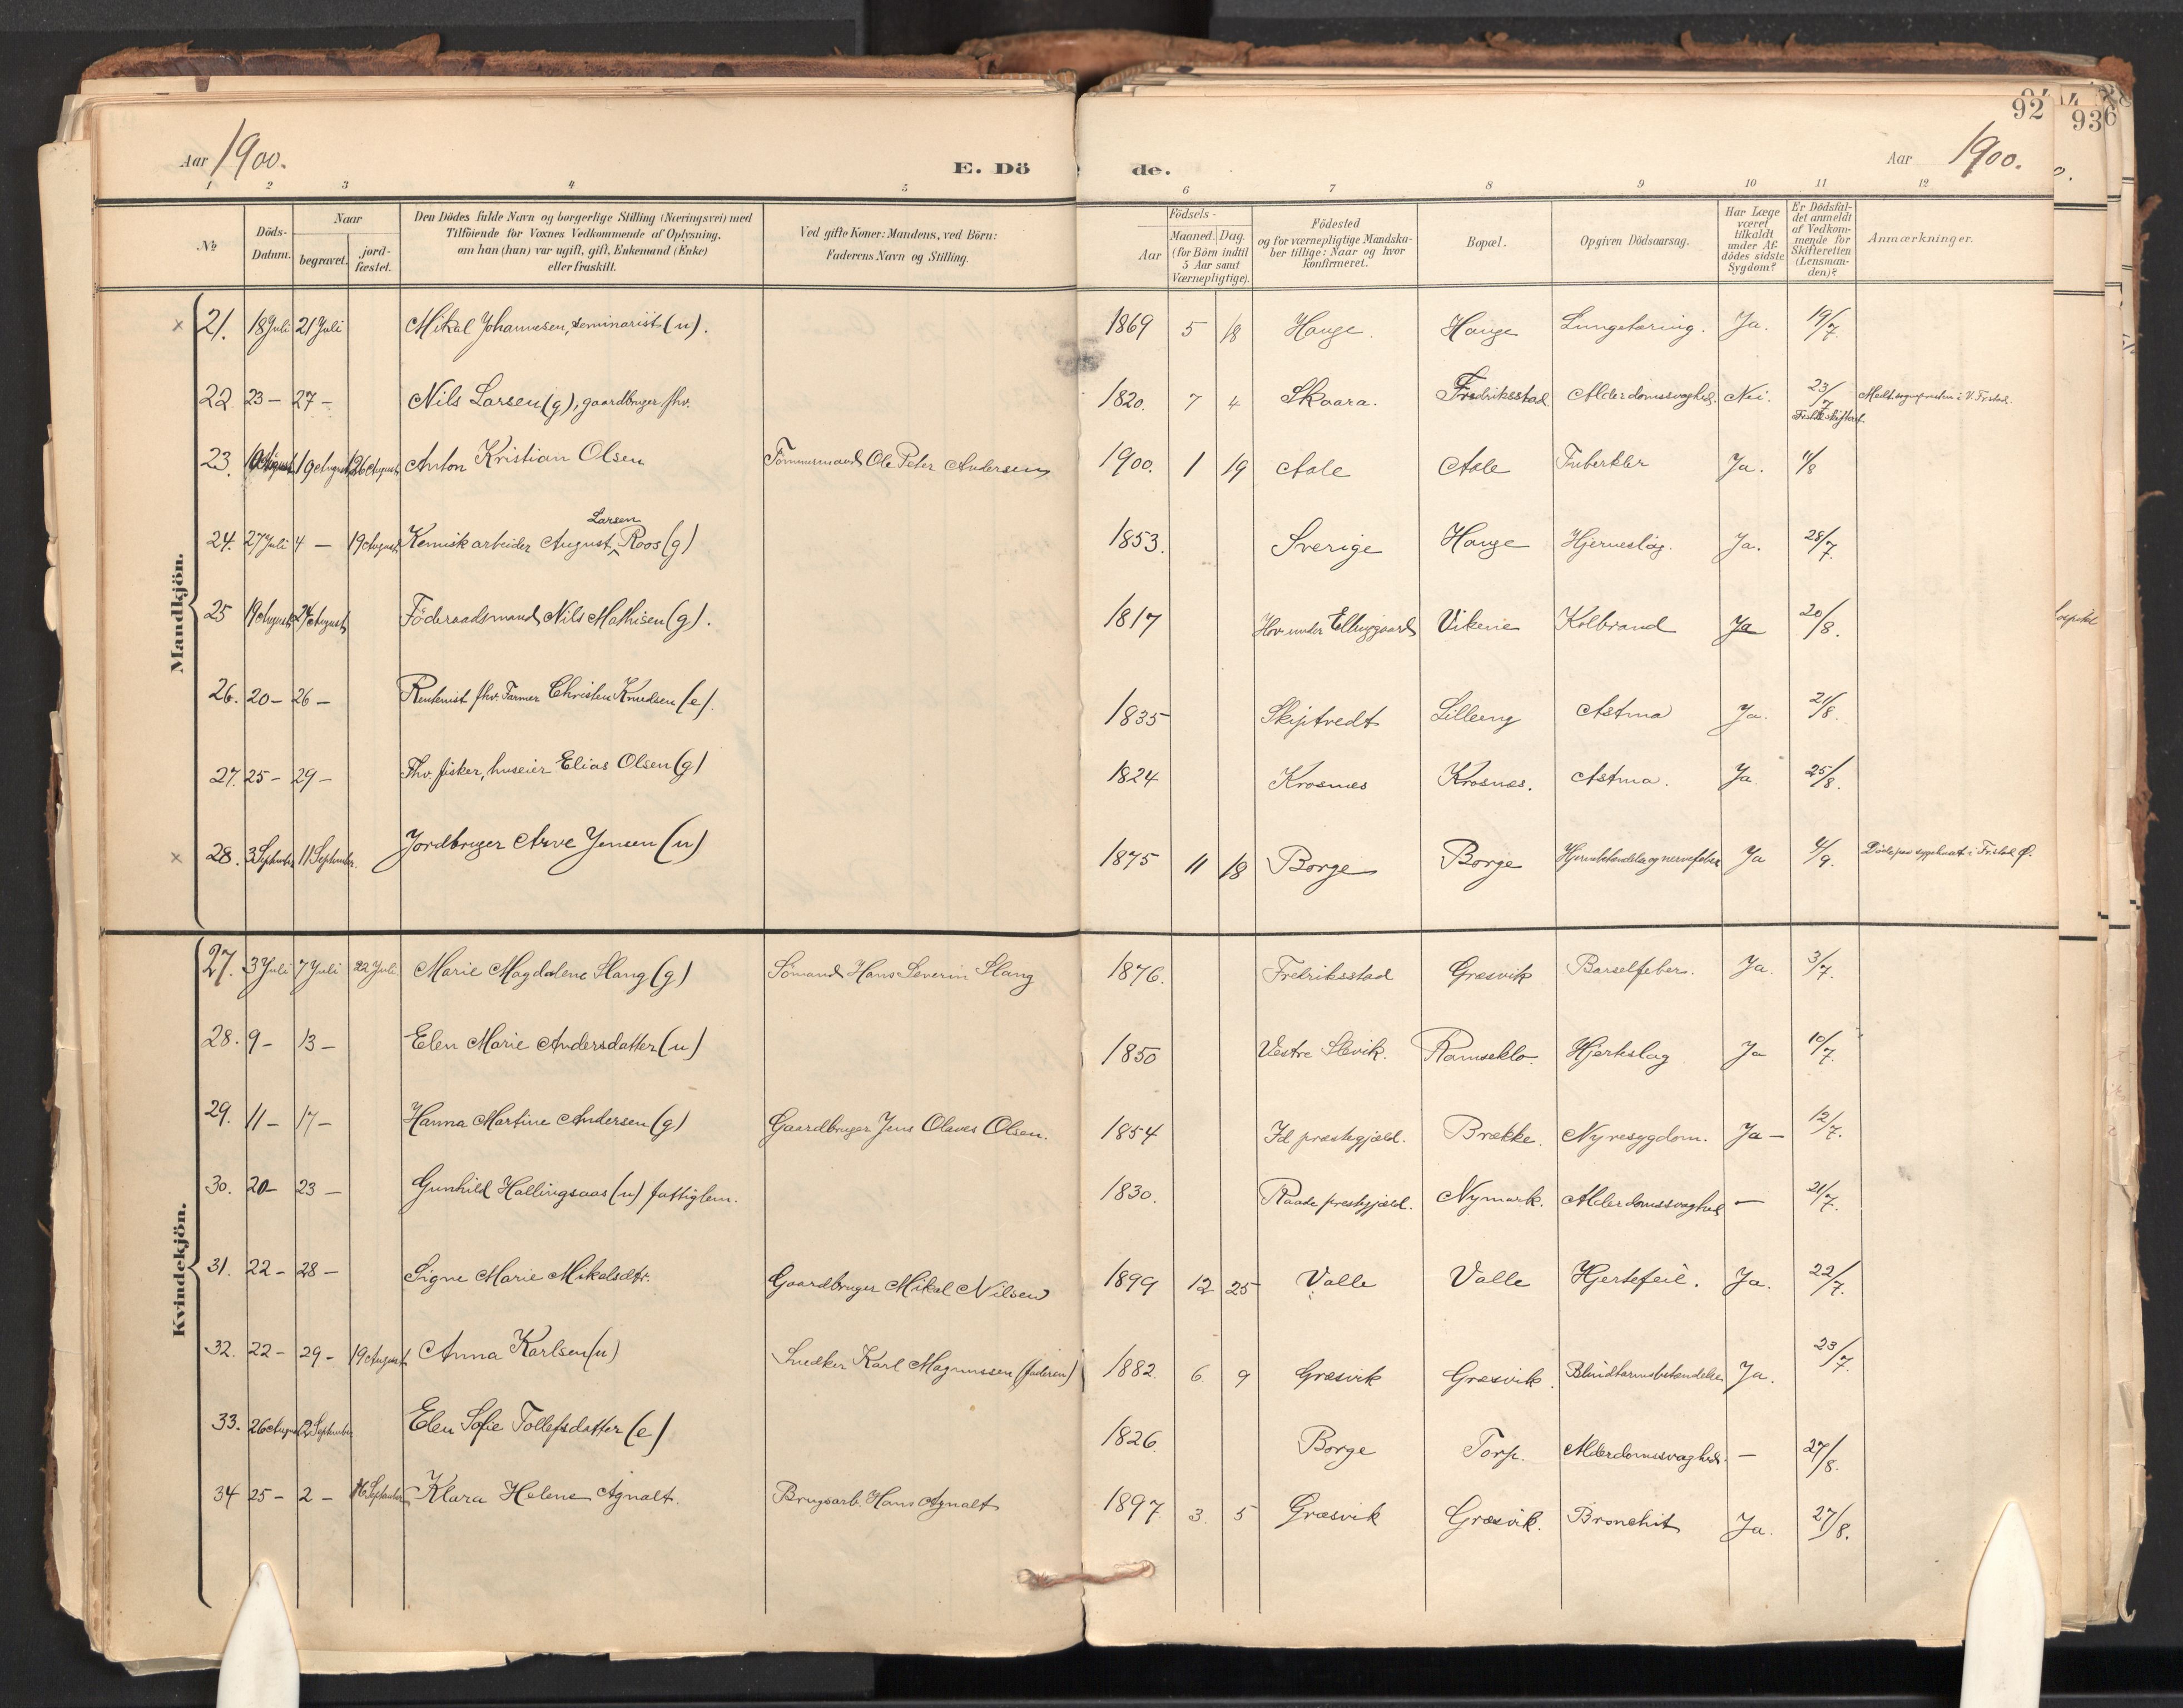 92
93
Aar 1900.
E. Dö
de.
Aar 1900.
1 2 3 4 5 6 7 8 9 10 11 12
No
Döds-Datum.
Naar
begravet.
jord-fæstet.
Den Dödes fulde Navn og borgerlige Stilling (Næringsvei) med
Tilföiende for Voxnes Vedkommende af Oplysning.
om han (hun) var ugift, gift, Enkemand (Enke)
eller fraskilt.
Ved gifte Koner: Mandens, ved Börn:
Faderens Navn og Stilling.
Födsels-
Aar
Maaned. Dag.
(for Börn indtil
5 Aar samt
Værnepligtige).
Födested
og for værnepligtige Mandska-
ber tillige: Naar og hvor
konfirmeret.
Bopæl.
Opgiven Dödsaarsag.
Har Læge
været
tilkaldt
under Af-
dödes sidste
Sygdom?
Er Dödsfal-
det anmeldt
af Vedkom-
mende for
Skifteretten
(Lensman-
den)?
Anmærkninger.
Mandkjön.
× 21. 18 Juli 21 Juli Mikal Johannesen, seminarist (u). 1869 5 18 Hauge. Hauge Lungetæring. Ja. 19/7.
22. 23 - 27 - Nils Larsen (g), gaardbruger fhv. 1820. 7 4 Skaara. Fredriksstad Alderdomssvaghed. Nei. 23/7
23. 19 August 26 August Anton Kristian Olsen Tömmermand Ole Peter Andersen 1900. 1 19 Aale Aale Tuberkler Ja.
24. 27 Juli 4 - 19 August Kemisk arbeider August Larsen Roos (g) 1853. Sverige Hauge Hjerneslag. Ja. 28/7.
25 19 August 24 August Föderaadsmand Nils Mathisen (g). 1817 Hov under Elingaard Vikene Kolbrand Ja 20/8.
26. 20 - 26 - Rentenist fhv. Farmer Christen Knudsen (e). 1835 Skiptvedt Lilleeng Astma Ja. 21/8.
27. 25 - 29 - Fhv. fisker, huseier Elias Olsen (g) 1824 Krosnes Krosnes. Astma. Ja 25/8.
× 28. 3 September 11 September. Jordbruger Arve Jensen (u) 1875 11 18 Borge Borge Hjernebetændelse og nervefeber Ja 4/9. Döde paa sygehuset i Fr.stad Ø.
Kvindekjön.
27. 3 Juli 7 Juli 22 Juli. Marie Magdalene Slang (g) Sömand Hans Severin Slang 1876. Fredriksstad Græsvik Barselfeber. Ja. 3/7.
28. 9 - 13 - Elen Marie Andersdatter (u) 1850 Vestre Slevik. Ramseklo. Hjerteslag Ja 10/7.
29. 11 - 17 - Hanna Martine Andersen (g) Gaardbruger Jens Olaves Olsen. 1854 Id præstegjæld. Brække. Nyresygdom. Ja - 12/7.
30. 20 - 23 - Gunhild Hallingsaas (u) fattiglem. 1830. Raade prestegjæld. Nymark. Alderdomssvaghed - 21/7.
31. 22 - 28 - Signe Marie Mikalsdtr. Gaardbruger Mikal Nilsen 1899 12 25 Valle Valle Hjertefeil. Ja. 22/7.
32. 22 - 29 - 19 August Anna Karlsen (u) Snedker Karl Magnussen (faderen) 1882. 6. 9 Græsvik Græsvik. Blindtarmsbetændelse Ja. 23/7.
33. 26 August 2 September Elen Sofie Tollefsdatter (e) 1826. Borge Torp. Alderdomssvaghed. - 27/8.
34 25 - 2 - 16 September Klara Helene Agnalt. Brugsarb. Hans Agnalt 1897. 3. 5 Græsvik Græsvik. Bronchit Ja. 27/8.